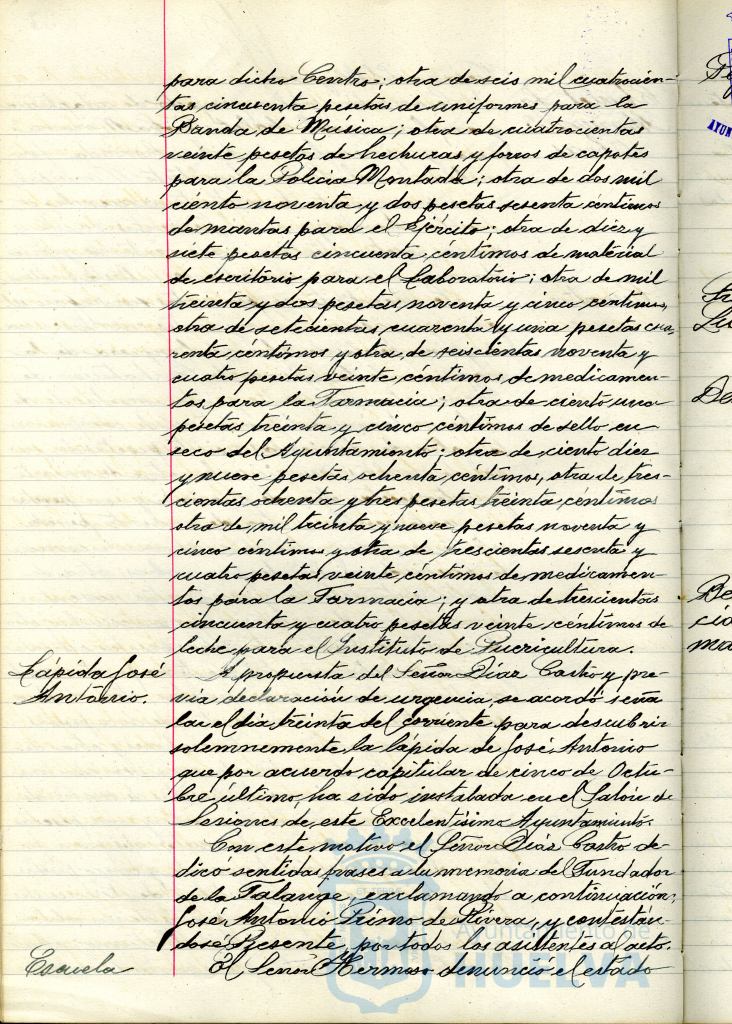 para dicho Centro; otra de seis mil cuatrocien-
tas cincuenta pesetas de uniformes para la
Banda de Música; otra de cuatrocientas
veinte pesetas de hechuras y forros de capotes
para la Policia Montada; otra de dos mil
ciento noventa y dos pesetas sesenta centimos
de mantas para el Ejército; otra de diez y
siete pesetas cincuenta céntimos de material
de escritorio para el Laboratorio; otra de mil
treinta y dos pesetas noventa y cinco centimos,
otra de setecientas cuarenta y una pesetas cua-
renta céntimos y otra de seiscientas noventa y
cuatro pesetas veinte céntimos de medicamen-
tos para la Farmacia; otra de ciento una
pesetas treinta y cinco céntimos de sello en
seco del Ayuntamiento; otra de ciento diez
y nueve pesetas ochenta céntimos, otra de tres-
cientas ochenta y tres pesetas treinta céntimos
otra de mil treinta y nueve pesetas noventa y
cinco céntimos y otra de trescientas sesenta y
cuatro pesetas veinte céntimos de medicamen-
tos para la Farmacia; y otra de trescientas
cincuenta y cuatro pesetas veinte céntimos de
leche para el Instituto de Puericultura.
Lápida José
Antonio.
A propuesta del Señor Díaz Castro y pre-
via declaración de urgencia, se acordó seña
lar el día treinta del corriente para descubrir
solemnemente la lápida de José Antonio
que por acuerdo capitular de cinco de Octu-
bre último, ha sido instalada en el Salón de
Sesiones de este Excelentísimo Ayuntamiento.
Con este motivo el Señor Díaz Castro de-
dicó sentidas frases a la memoria del Fundador
de la Falange, exclamando a continuación,
José Antonio Primo de Rivera, y contestán-
dose Presente, por todos los asistentes al acto.
Escuela
El Señor Hermoso denunció el estado
Ayuntamiento de
HUELVA